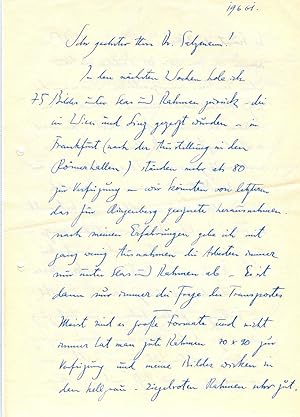 19661.
Sehr geehrter Herr Dr. Salzmann!
In den nächsten Wochen hole ich
75 Bilder unter Glas und Rahmen zurück - die
in Wien und Linz gezeigt wurden - in
Frankfurt (nach der Ausstellung in den
Römerhallen) stünden mehr als 80
zur Verfügung - wir könnten von letzteren
das für geeignete herausnehmen.
nach meinen Erfahrungen gebe ich mit
ganz wenig Ausnahmen die Arbeiten immer
nur unter Glas und Rahmen ab - Es ist
dann nur immer die Frage des Transportes
Meist sind es große Formate und nicht
immer hat man gute Rahmen 70 x 90 zur
Verfügung und meine Bilder wirken in
den hellgrau - ziegelroten Rahmen sehr gut.